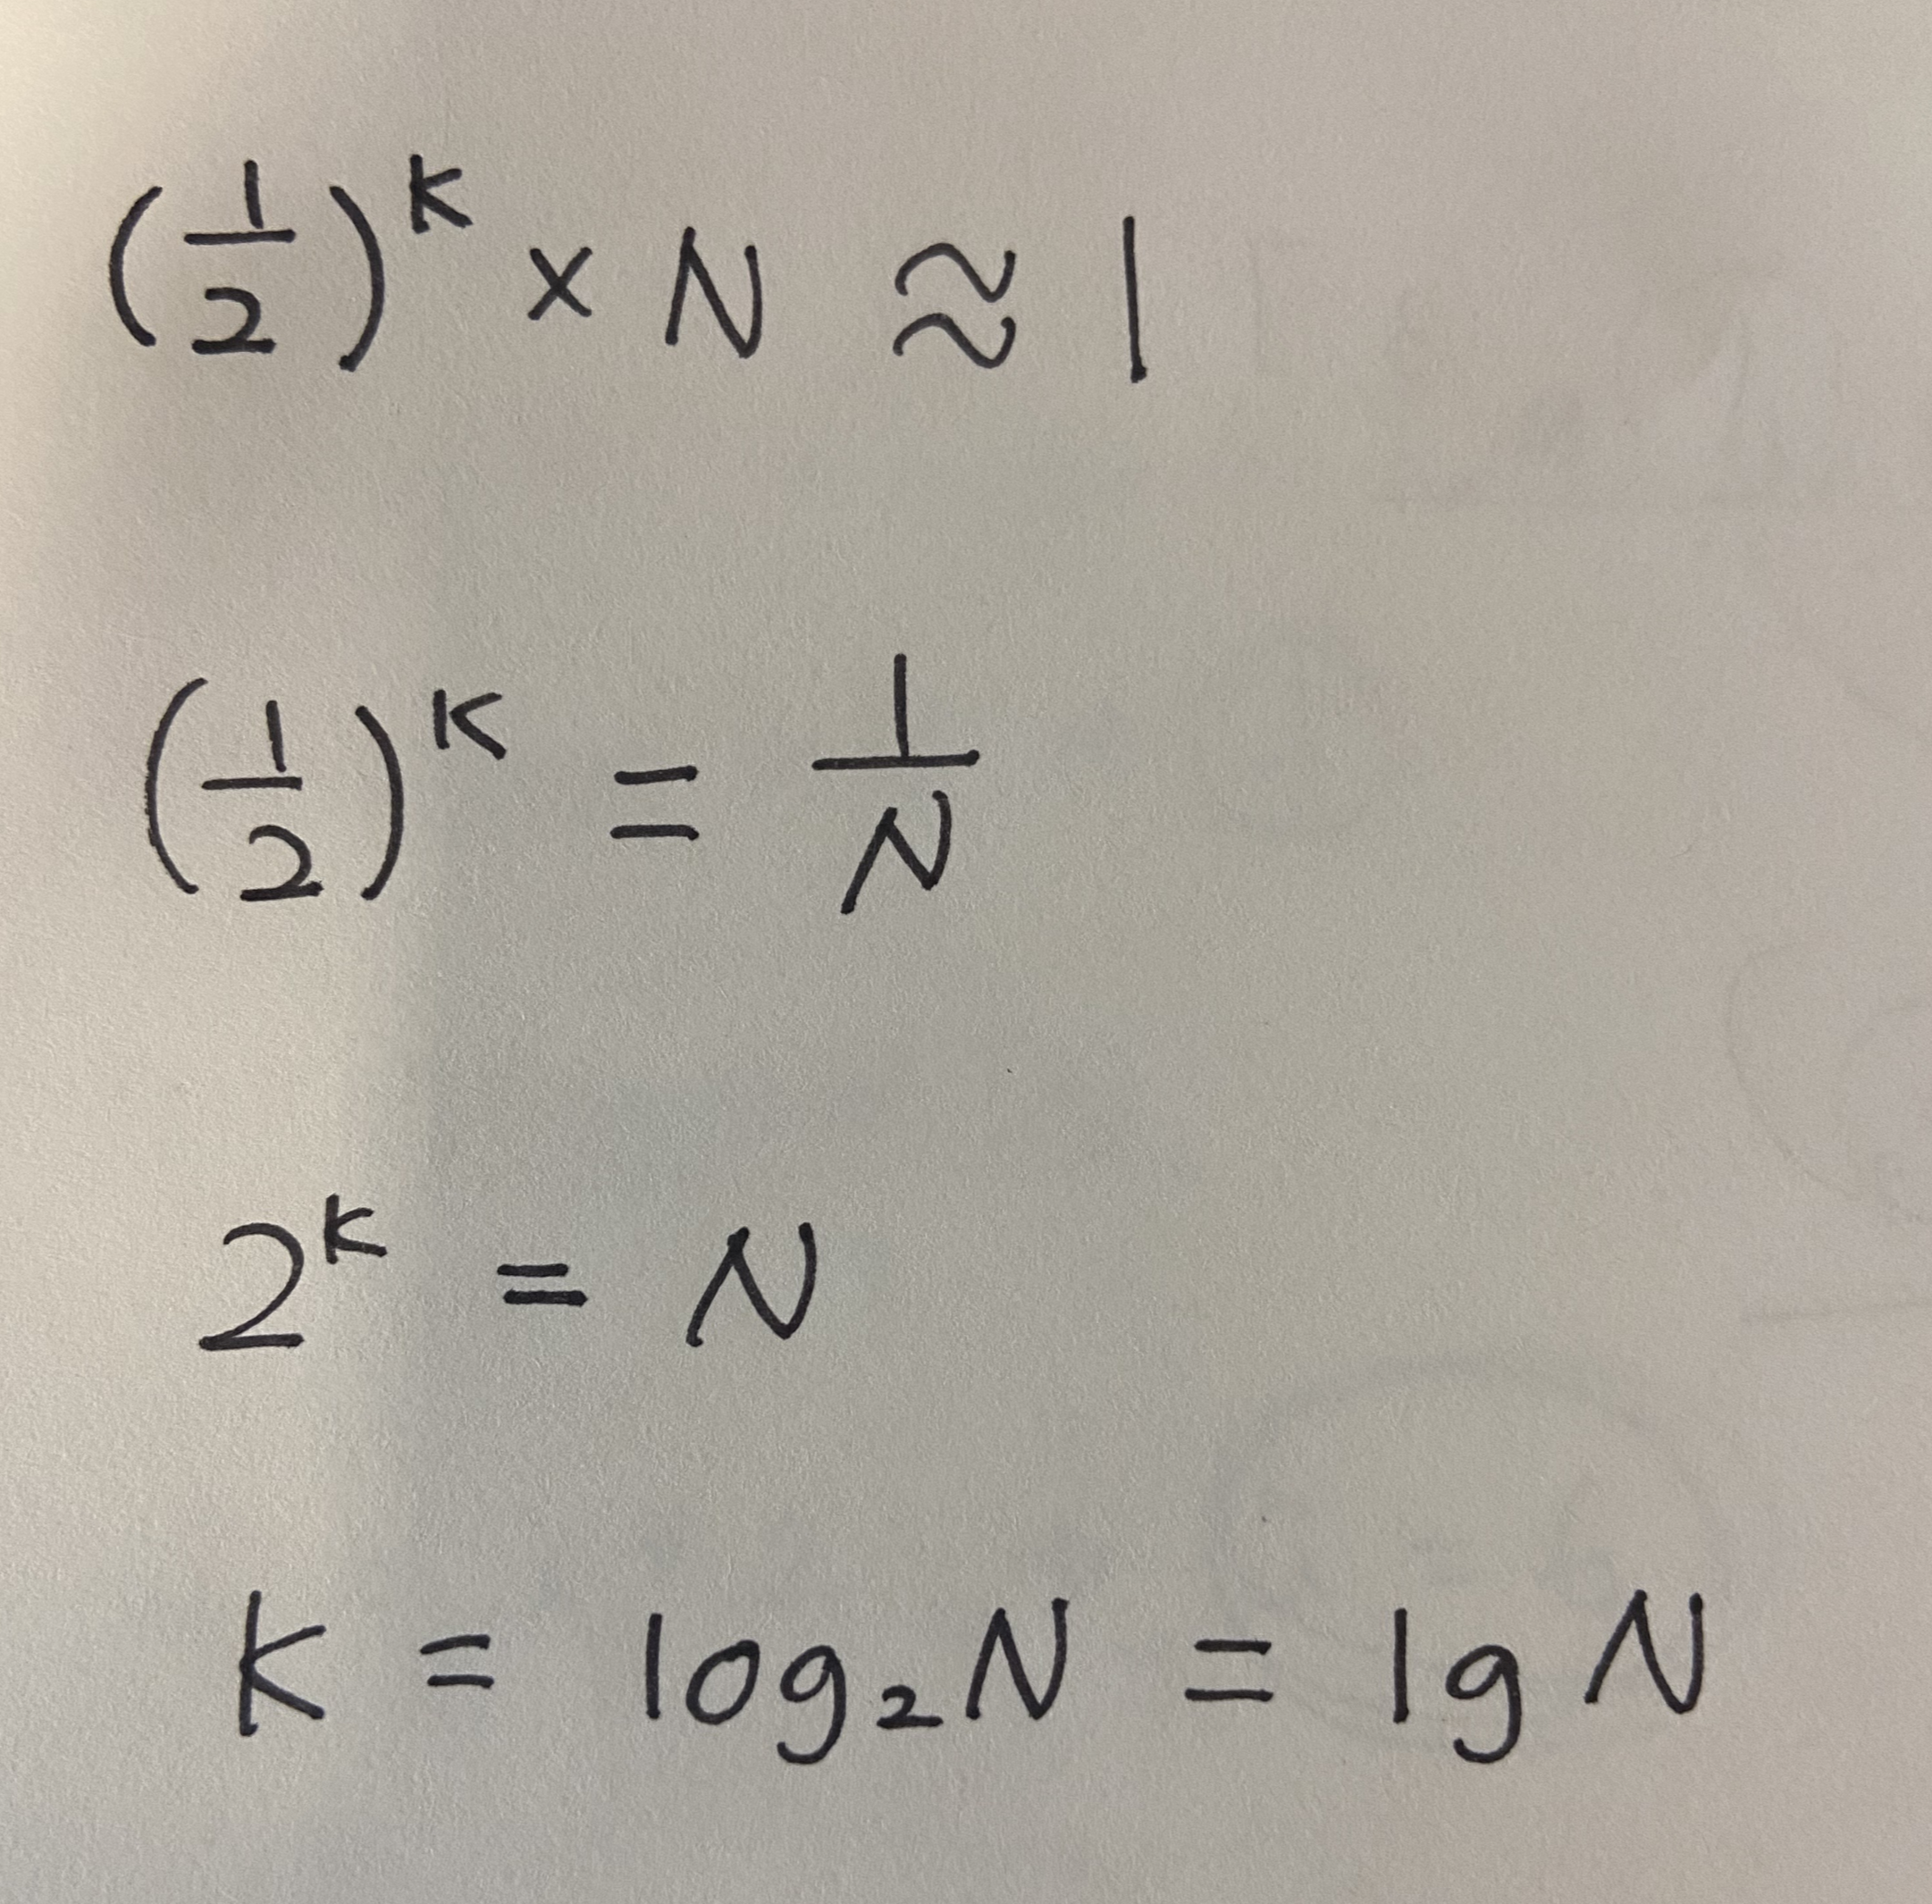 (1/2)^K × N ≈ 1
(1/2)^K = 1/N
2^K = N
K = log₂N = lg N